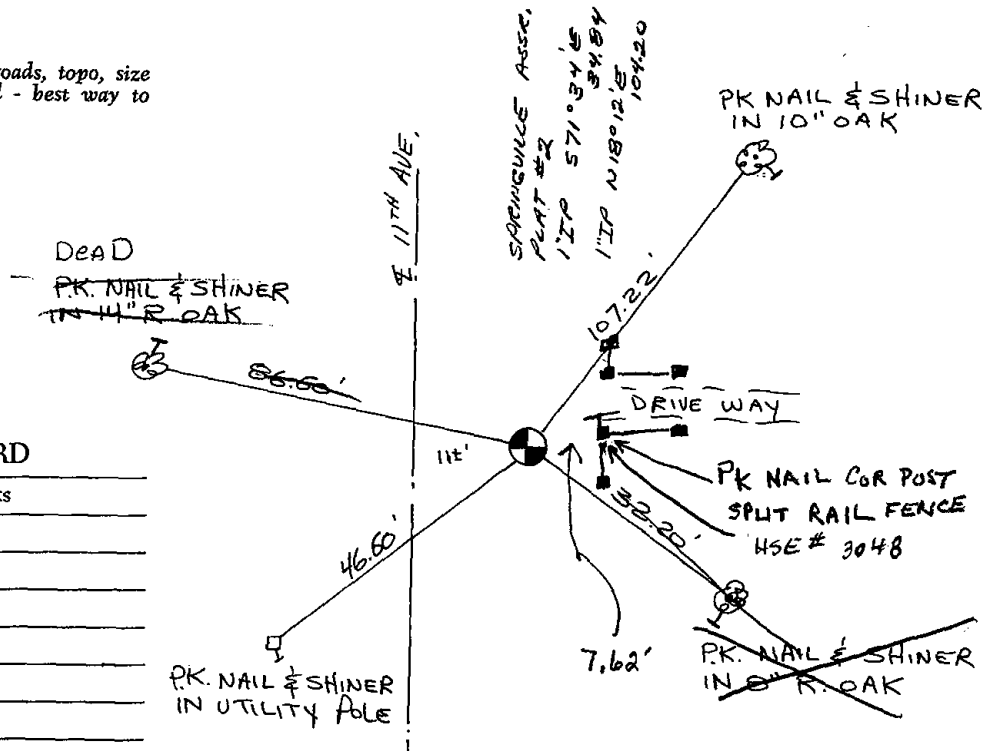 roads, topo, size
- best way to
SPRINGVILLE ASSR.
PLAT #2
1"IP S71°34'E
34.84
1"IP N18°12'E
104.20
PK NAIL & SHINER
IN 10" OAK
℄ 11TH AVE.
DEAD
P.K. NAIL & SHINER
IN 14" R OAK
107.22'
86.60'
DRIVE WAY
RD
11±'
PK NAIL COR POST
SPLIT RAIL FENCE
HSE # 3048
32.20'
46.60'
7.62'
P.K. NAIL & SHINER
IN UTILITY POLE
P.K. NAIL & SHINER
IN R. OAK